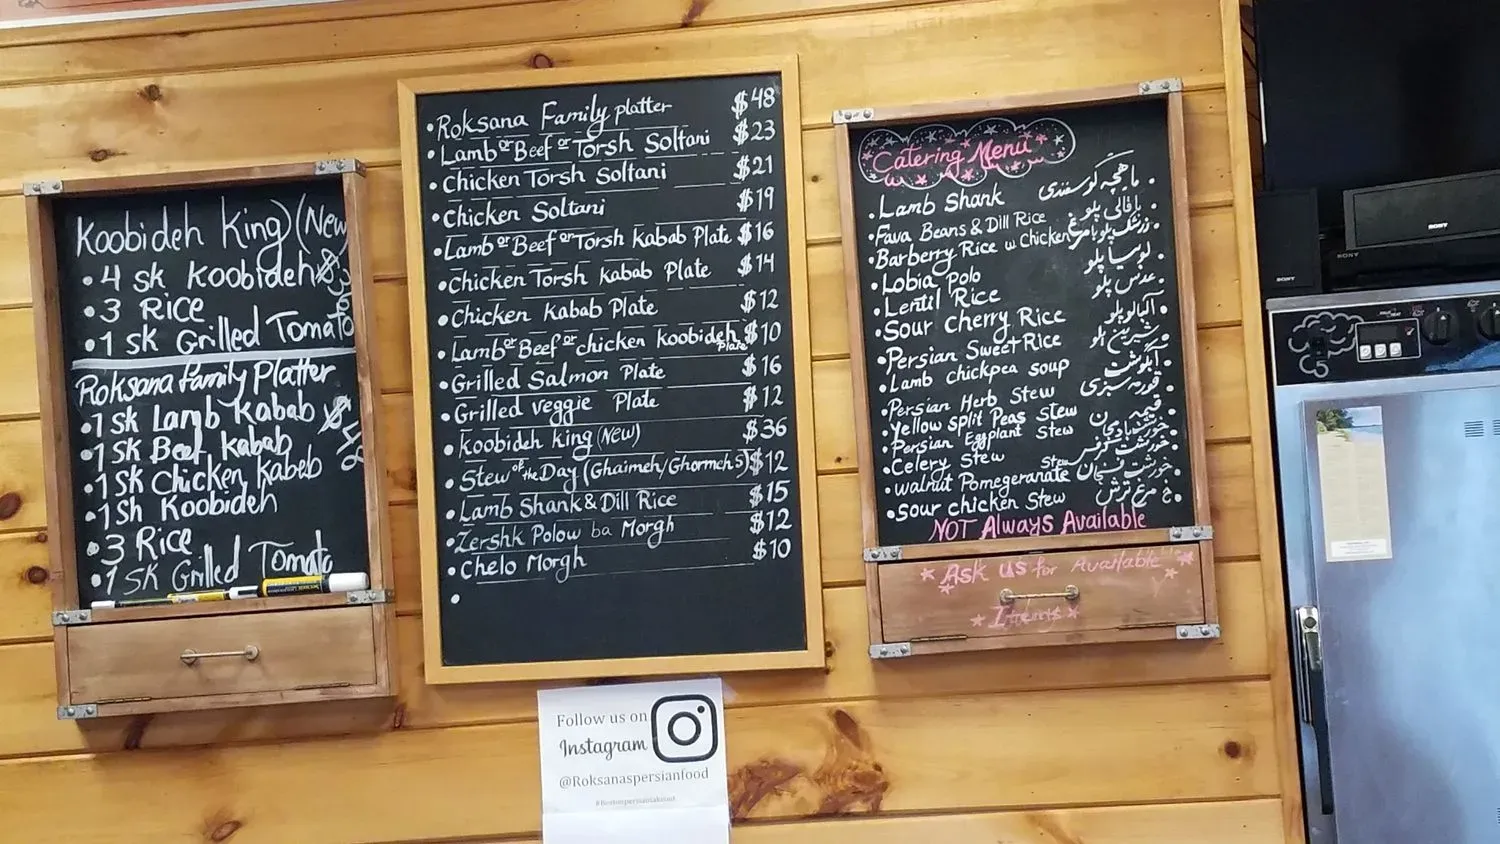 Koobideh King (New)
• 4 sk Koobideh $36
• 3 Rice
• 1 sk Grilled Tomato
Roksana Family Platter
• 1 sk Lamb Kabab $48
• 1 sk Beef Kabab
• 1 sk Chicken Kabeb
• 1 sh Koobideh
• 3 Rice
• 1 sk Grilled Tomato
• Roksana Family platter $48
• Lamb or Beef or Torsh Soltani $23
• Chicken Torsh Soltani $21
• Chicken Soltani $19
• Lamb or Beef or Torsh Kabab Plate $16
• Chicken Torsh Kabab Plate $14
• Chicken Kabab Plate $12
• Lamb or Beef or chicken koobideh Plate $10
• Grilled Salmon Plate $16
• Grilled veggie Plate $12
• Koobideh King (New) $36
• Stew of the Day (Ghaimeh/Ghormeh s) $12
• Lamb Shank & Dill Rice $15
• Zershk Polow ba Morgh $12
• Chelo Morgh $10
•
Catering Menu
• Lamb Shank ماهیچه گوسفندی •
• Fava Beans & Dill Rice باقالی پلو •
• Barberry Rice w Chicken زرشک پلو با مرغ •
• Lobia Polo لوبیا پلو •
• Lentil Rice عدس پلو •
• Sour Cherry Rice آلبالو پلو •
• Persian Sweet Rice شیرین پلو •
• Lamb chickpea soup آبگوشت •
• Persian Herb Stew قورمه سبزی •
• Yellow split Peas Stew قیمه •
• Persian Eggplant Stew خورشت بادمجان •
• Celery Stew خورشت کرفس •
• walnut Pomegeranate Stew خورشت فسنجان •
• sour chicken Stew مرغ ترش •
NOT Always Available
Ask us for Available
Items
SONY
SONY
Follow us on
Instagram
@Roksanaspersianfood
#Bostonpersiantakeout